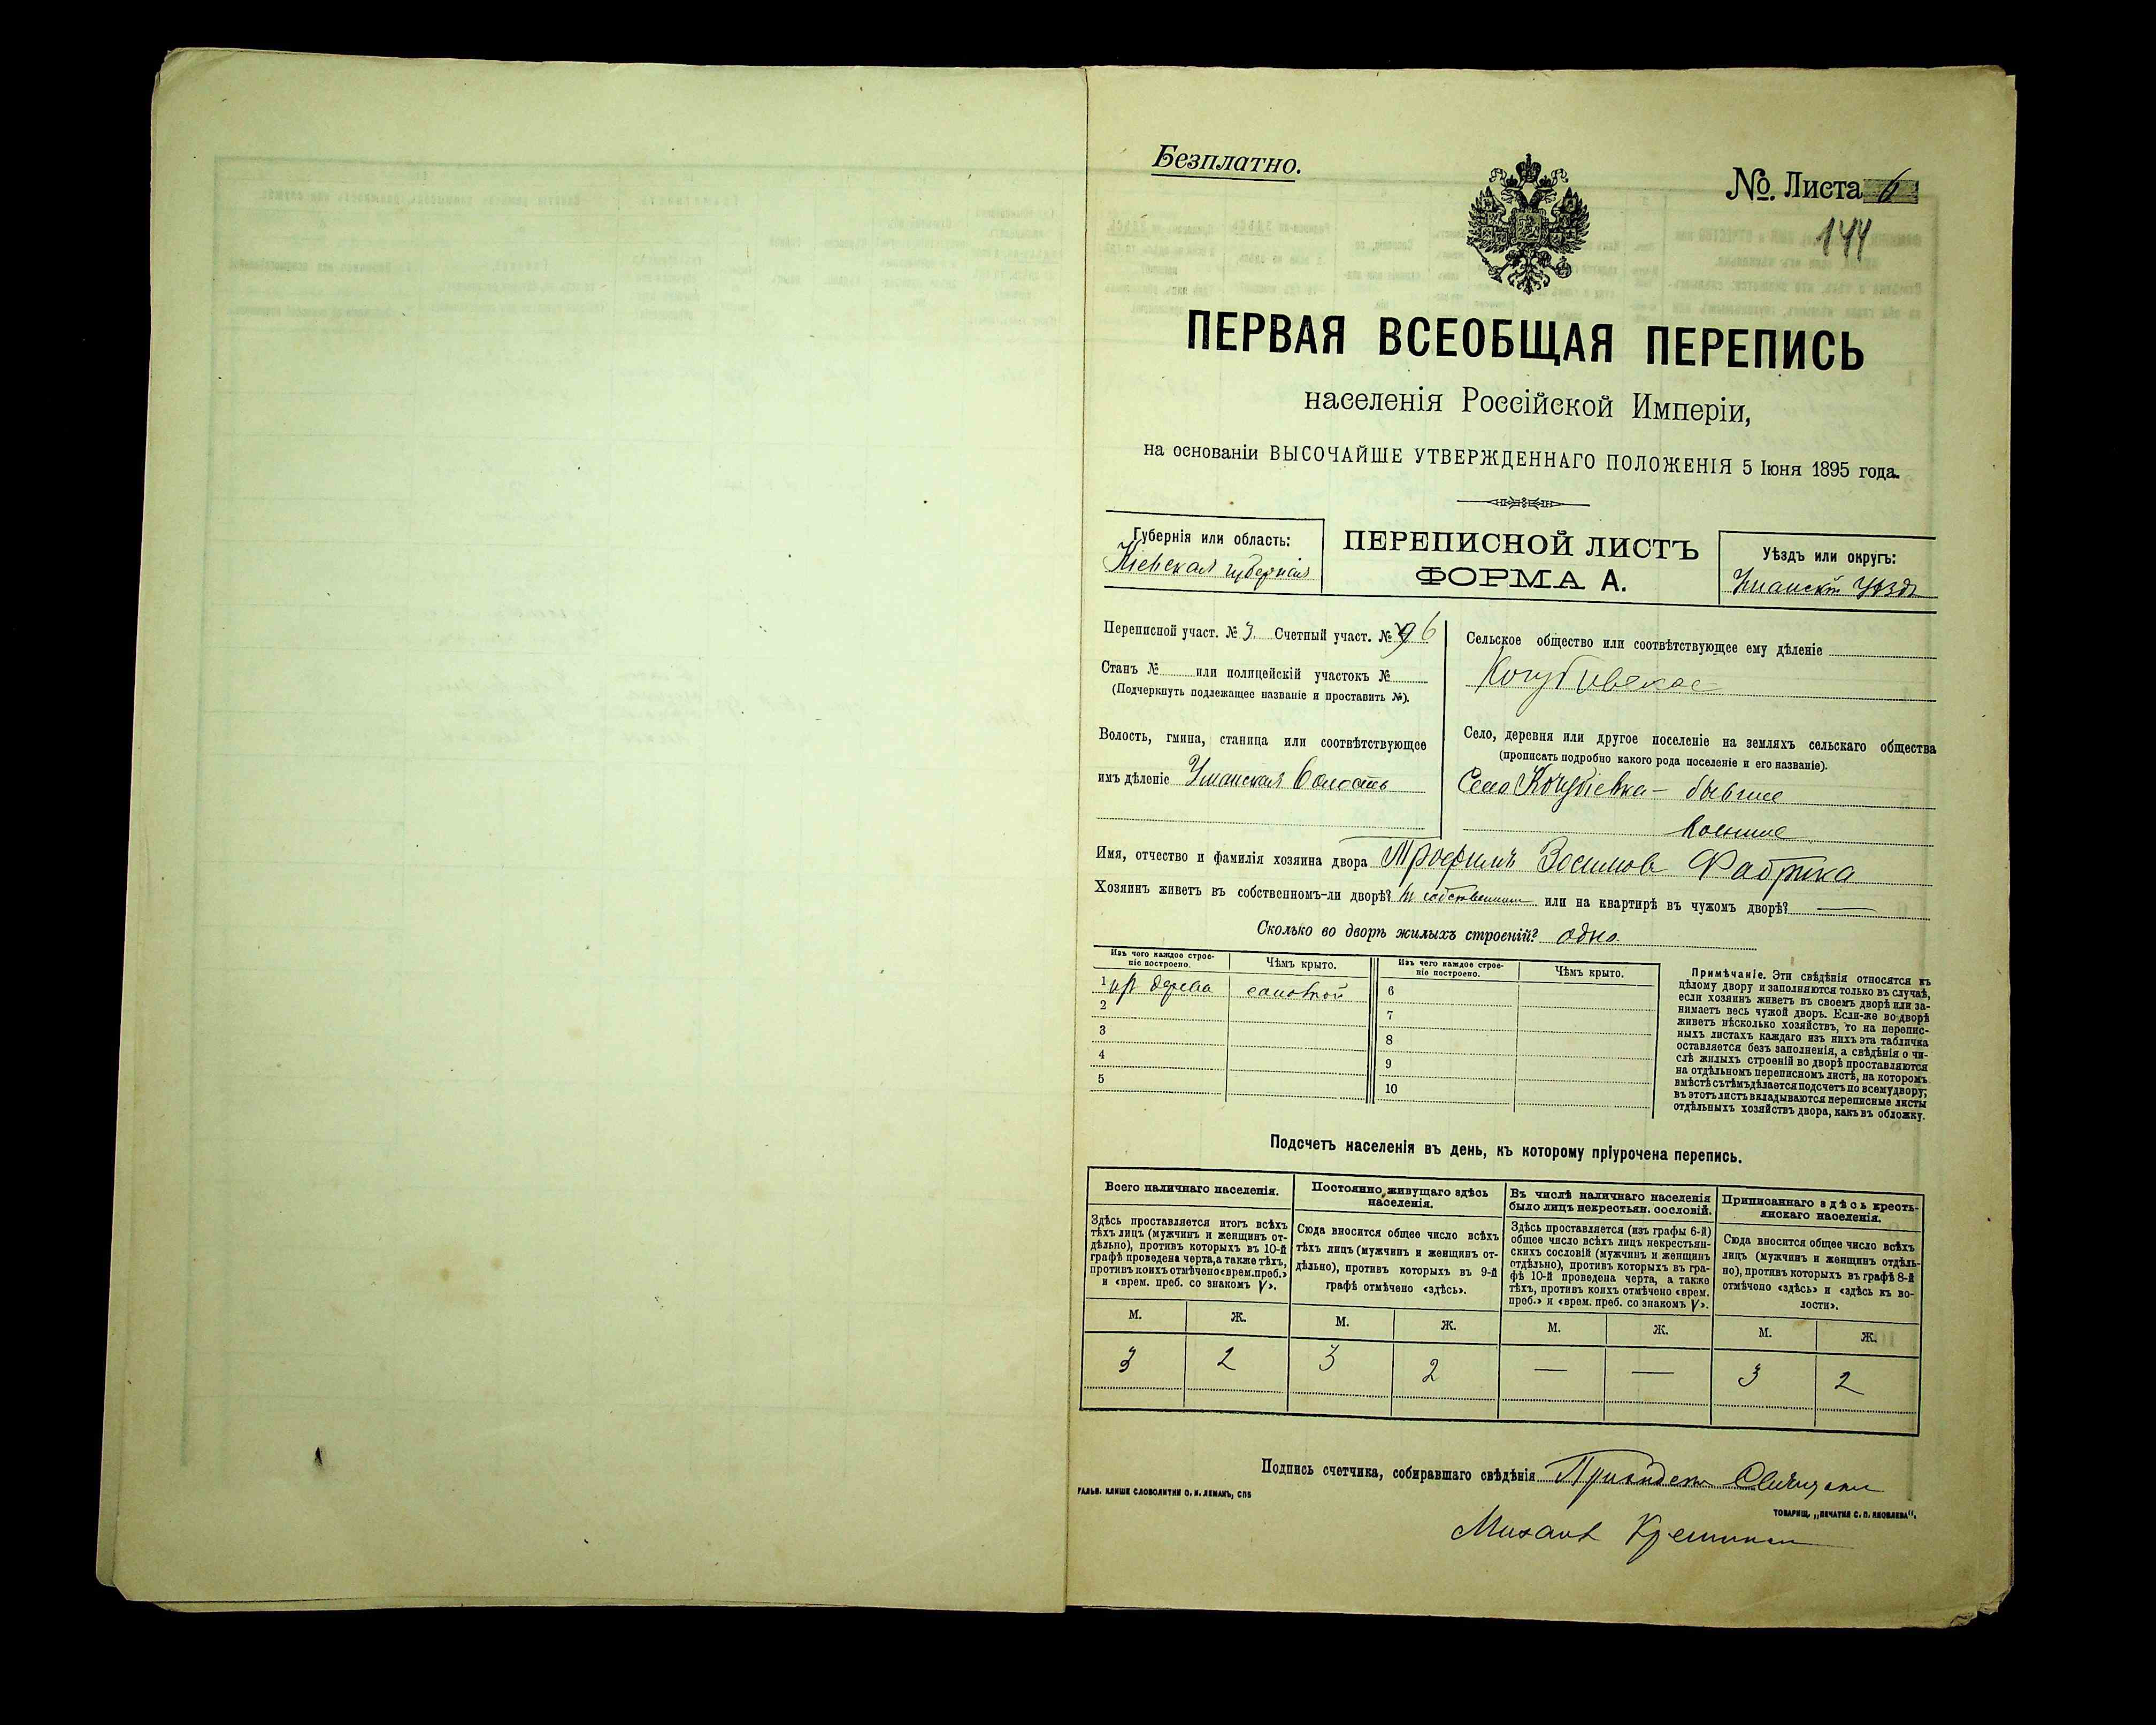 Безплатно.
№. Листа 6
144
ПЕРВАЯ ВСЕОБЩАЯ ПЕРЕПИСЬ
населенія Россійской Имперіи,
на основаніи ВЫСОЧАЙШЕ УТВЕРЖДЕННАГО ПОЛОЖЕНІЯ 5 Іюня 1895 года.
Губернія или область:
Кіевская губернія
ПЕРЕПИСНОЙ ЛИСТЪ
ФОРМА А.
Уѣздъ или округъ:
Уманскій уѣздъ
Переписной участ. № 3 Счетный участ. № 6
Станъ № или полицейскій участокъ №
(Подчеркнуть подлежащее названіе и проставить №).
Волость, гмина, станица или соотвѣтствующее
имъ дѣленіе Уманская Волость
Сельское общество или соотвѣтствующее ему дѣленіе
Кочубіевское
Село, деревня или другое поселеніе на земляхъ сельскаго общества
(прописать подробно какого рода поселеніе и его названіе).
Село Кочубіевка - бывшее
военное
Имя, отчество и фамилія хозяина двора Трофимъ Зосимовъ Фабрика
Хозяинъ живетъ въ собственномъ-ли дворѣ? въ собственномъ или на квартирѣ въ чужомъ дворѣ? —
Сколько во дворѣ жилыхъ строеній? одно
Изъ чего каждое строе-
ніе построено.
Чѣмъ крыто.
Изъ чего каждое строе-
ніе построено.
Чѣмъ крыто.
1 изъ дерева соломой 6
2 7
3 8
4 9
5 10
Примѣчаніе. Эти свѣдѣнія относятся къ
цѣлому двору и заполняются только въ случаѣ,
если хозяинъ живетъ въ своемъ дворѣ или за-
нимаетъ весь чужой дворъ. Если-же во дворѣ
живетъ нѣсколько хозяйствъ, то на перепис-
ныхъ листахъ каждаго изъ нихъ эта табличка
оставляется безъ заполненія, а свѣдѣнія о чи-
слѣ жилыхъ строеній во дворѣ проставляются
на отдѣльномъ переписномъ листѣ, на которомъ
вмѣстѣ съ тѣмъ дѣлается подсчетъ по всему двору;
въ этотъ листъ вкладываются переписные листы
отдѣльныхъ хозяйствъ двора, какъ въ обложку.
Подсчетъ населенія въ день, къ которому пріурочена перепись.
Всего наличнаго населенія.
Здѣсь проставляется итогъ всѣхъ
тѣхъ лицъ (мужчинъ и женщинъ от-
дѣльно), противъ которыхъ въ 10-й
графѣ проведена черта, а также тѣхъ,
противъ коихъ отмѣчено «врем. преб.»
и «врем. преб. со знакомъ V».
Постоянно живущаго здѣсь
населенія.
Сюда вносится общее число всѣхъ
тѣхъ лицъ (мужчинъ и женщинъ от-
дѣльно), противъ которыхъ въ 9-й
графѣ отмѣчено «здѣсь».
Въ числѣ наличнаго населенія
было лицъ некрестьян. сословій.
Здѣсь проставляется (изъ графы 6-й)
общее число всѣхъ лицъ некрестьян-
скихъ сословій (мужчинъ и женщинъ
отдѣльно), противъ которыхъ въ гра-
фѣ 10-й проведена черта, а также
тѣхъ, противъ коихъ отмѣчено «врем.
преб.» и «врем. преб. со знакомъ V».
Приписаннаго здѣсь кресть-
янскаго населенія.
Сюда вносится общее число всѣхъ
лицъ (мужчинъ и женщинъ отдѣль-
но), противъ которыхъ въ графѣ 8-й
отмѣчено «здѣсь» и «здѣсь къ во-
лости».
М. Ж. М. Ж. М. Ж. М. Ж.
3 2 3 2 — — 3 2
Подпись счетчика, собиравшаго свѣдѣнія
ГАЛЬВ. КЛИШЕ СЛОВОЛИТНИ О. И. ЛЕМАНЪ, СПБ
ТОВАРИЩ. „ПЕЧАТНЯ С. П. ЯКОВЛЕВА".
Михаилъ